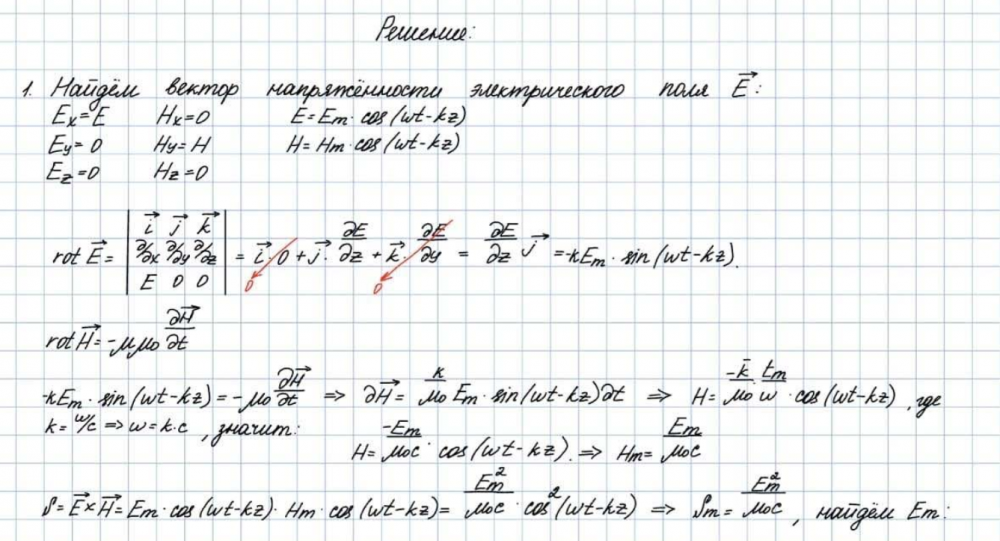 Решение:
1. Найдём вектор напряжённости электрического поля E⃗:
Eₓ=E Hₓ=0 E=Em·cos(wt-kz)
Ey=0 Hy=H H=Hm·cos(wt-kz)
Ez=0 Hz=0
rot E⃗ = | i⃗ j⃗ k⃗ ; ∂/∂x ∂/∂y ∂/∂z ; E 0 0 | = i⃗·0 + j⃗·∂E/∂z + k⃗·∂E/∂y = ∂E/∂z j⃗ =-kEm·sin(wt-kz).
0 0
rot H⃗=-μμ₀ ∂H⃗/∂t
-kEm·sin(wt-kz)=-μ₀ ∂H⃗/∂t ⇒ ∂H⃗= k/μ₀ Em·sin(wt-kz)∂t ⇒ H= -k/μ₀ Em/w ·cos(wt-kz), где
k=w/c ⇒ w=k·c, значит: H= -Em/μ₀c · cos(wt-kz). ⇒ Hm= Em/μ₀c
S=E⃗×H⃗=Em·cos(wt-kz)·Hm·cos(wt-kz)= Em²/μ₀c · cos²(wt-kz) ⇒ Sm= Em²/μ₀c, найдём Em: